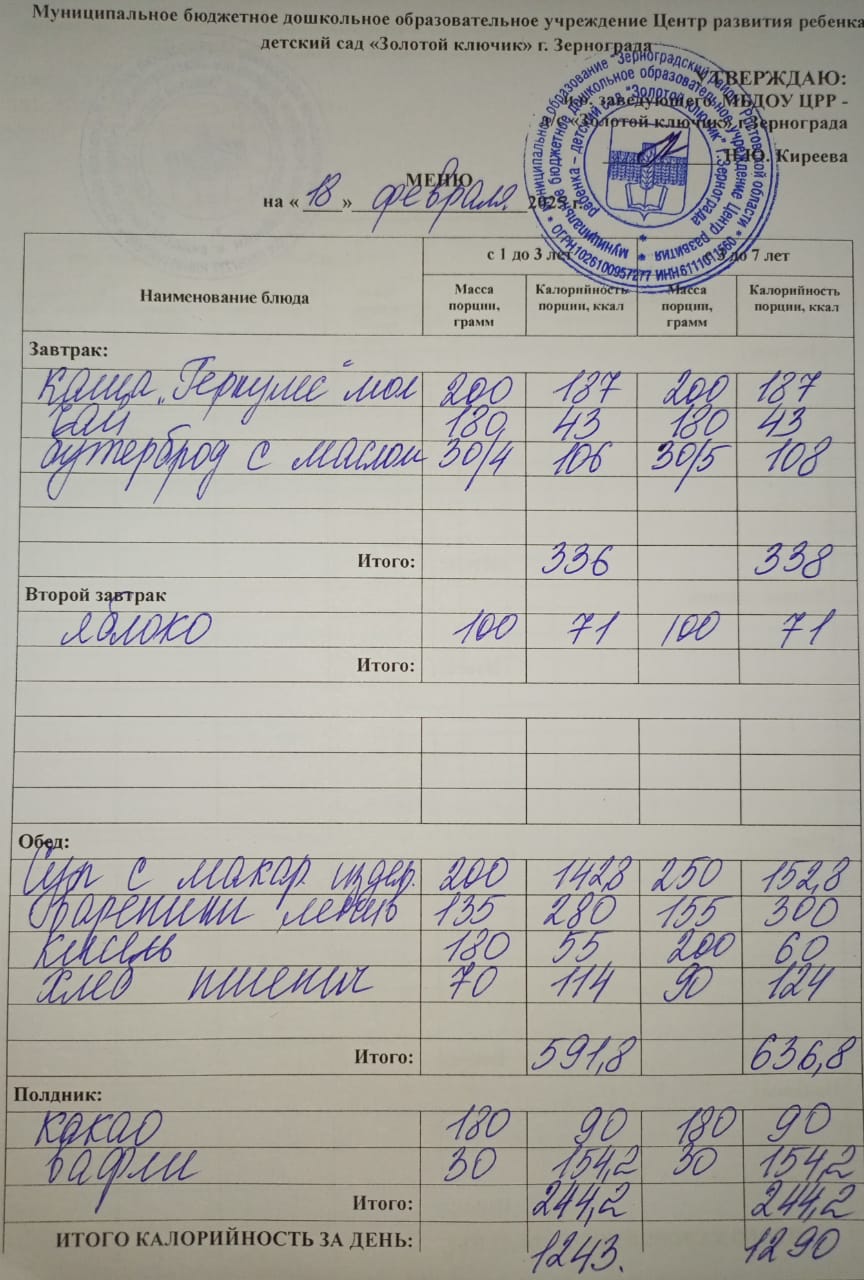 Муниципальное бюджетное дошкольное образовательное учреждение Центр развития ребенка
детский сад «Золотой ключик» г. Зернограда
УТВЕРЖДАЮ:
и.о. заведующего МБДОУ ЦРР -
д/с «Золотой ключик» г.Зернограда
Н.Ю. Киреева
МЕНЮ
на « 18 » февраля 2025 г.
Наименование блюда
с 1 до 3 лет с 3 до 7 лет
Масса порции, грамм Калорийность порции, ккал Масса порции, грамм Калорийность порции, ккал
Завтрак:
Каша „Геркулес" мол 200 187 200 187
Чай 180 43 180 43
Бутерброд с маслом 30/4 106 30/5 108
Итого: 336 338
Второй завтрак
Яблоко 100 71 100 71
Итого:
Обед:
Суп с макар. издел. 200 142,8 250 152,8
Вареники ленив 135 280 155 300
Кисель 180 55 200 60
Хлеб пшенич 70 114 90 124
Итого: 591,8 636,8
Полдник:
Какао 180 90 180 90
Вафли 30 154,2 30 154,2
Итого: 244,2 244,2
ИТОГО КАЛОРИЙНОСТЬ ЗА ДЕНЬ: 1243. 1290